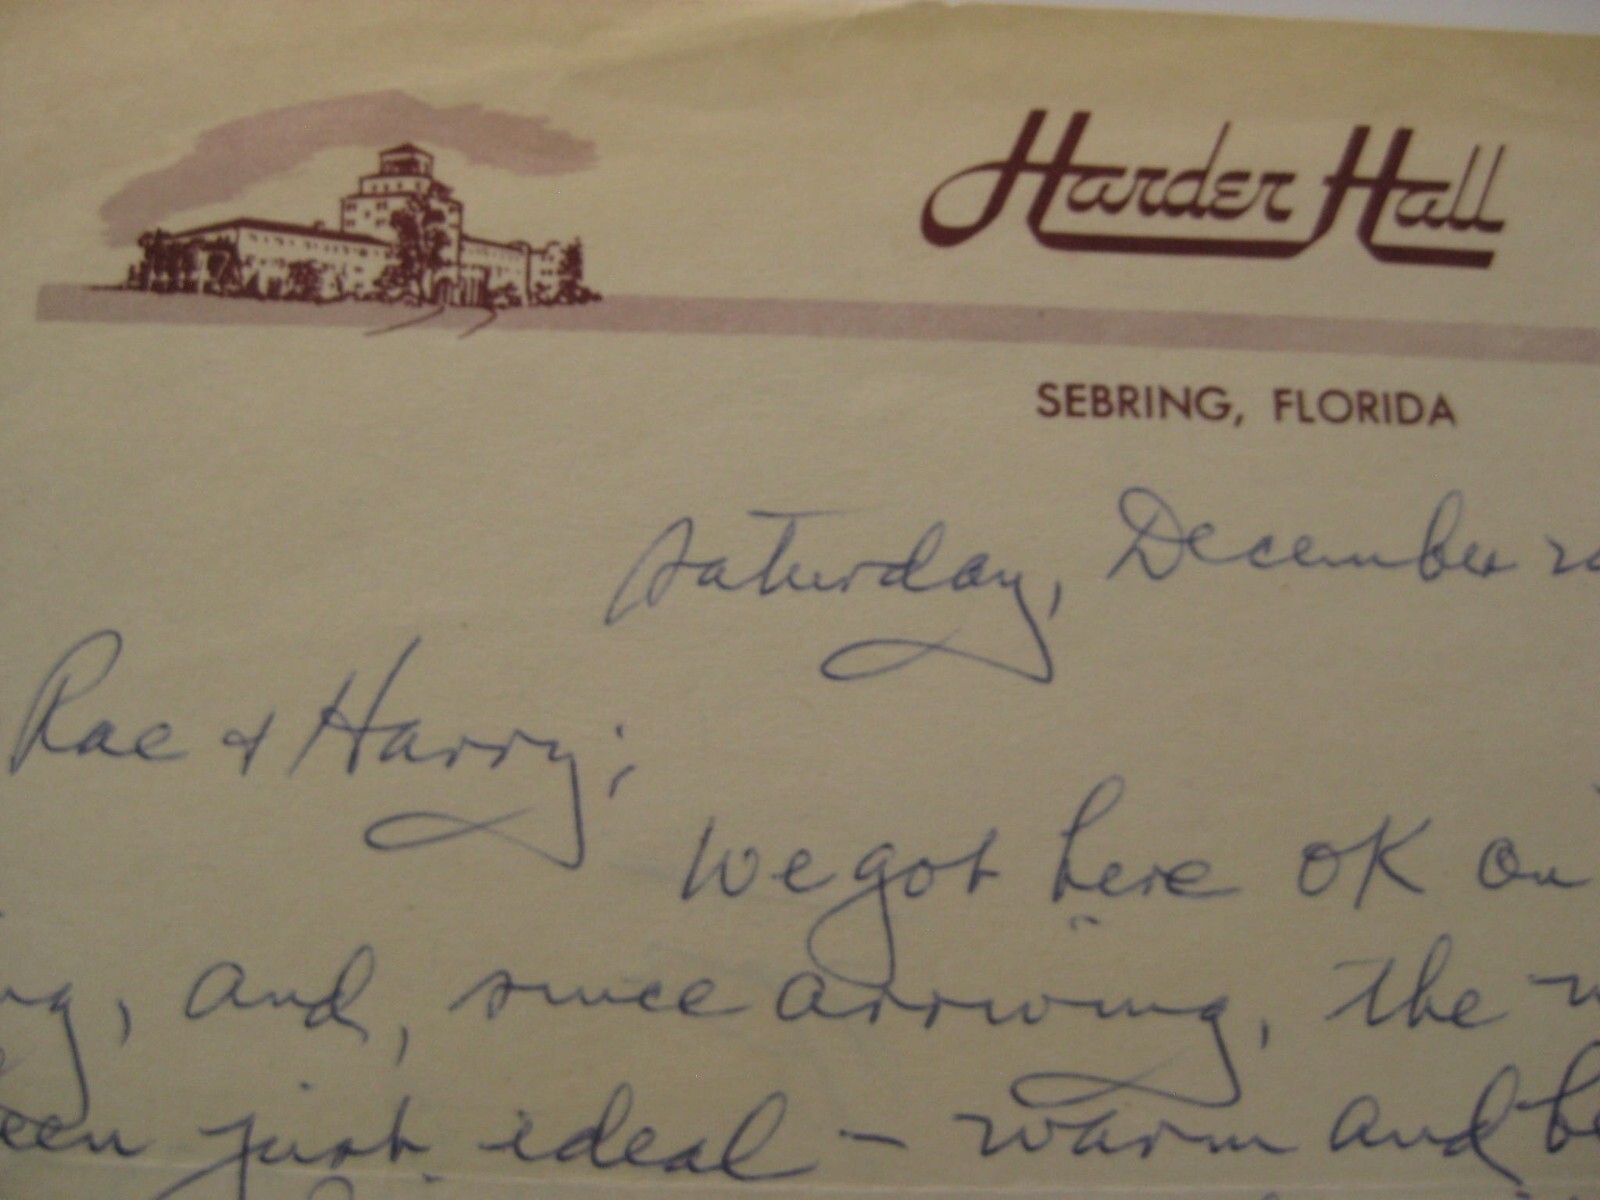 Harder Hall
SEBRING, FLORIDA
Saturday, December
Rae & Harry;
We got here OK on
and, since arriving, the
just ideal - warm and